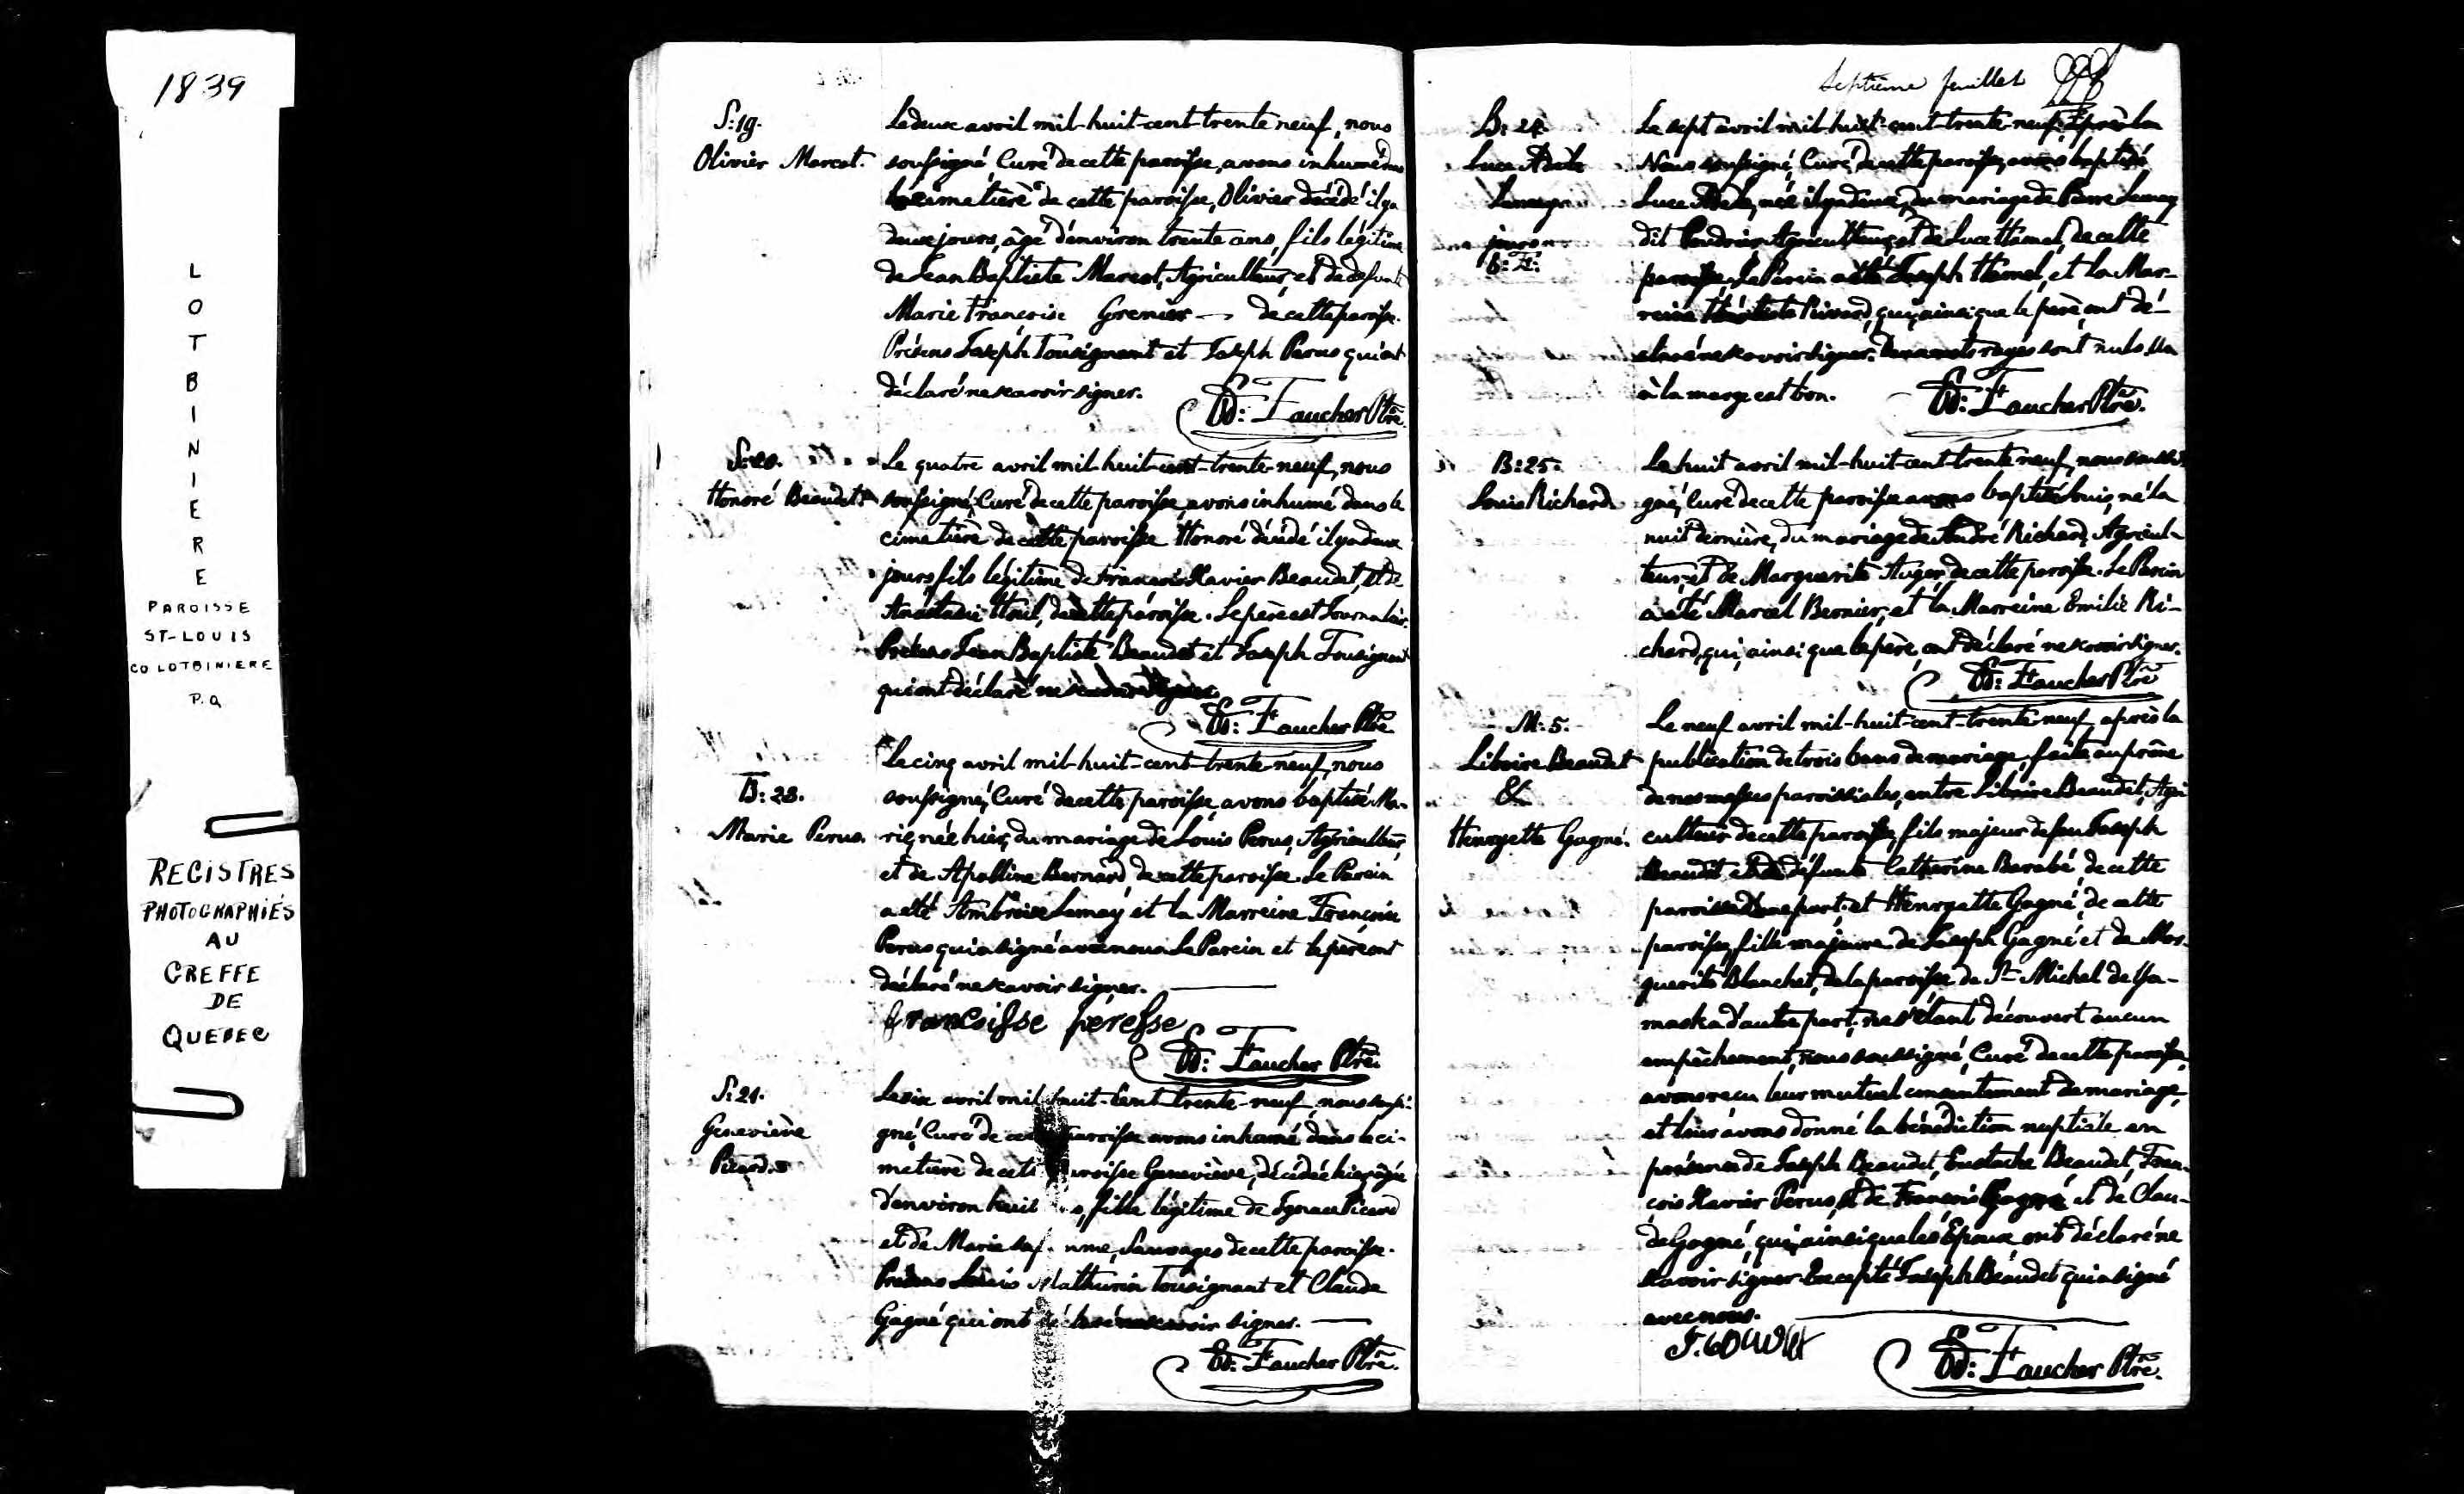 1839
LOTBINIERE
PAROISSE
ST-LOUIS
CO LOTBINIERE
P.Q
REGISTRES
PHOTOGRAPHIÉS
AU
GREFFE
DE
QUEBEC
S:19.
Olivier Marcot.
Le deux avril mil-huit-cent-trente neuf, nous
soussigné Curé de cette paroisse, avons inhumé dans
le cimetière de cette paroisse, Olivier décédé il y a
deux jours, âgé d'environ trente ans, fils légitime
de Jean Baptiste Marcot, Agriculteur, et de defunte
Marie Françoise Grenier — de cette paroisse.
Présens Joseph Tousignant et Joseph Perus qui ont
déclaré ne savoir signer.
Ed: Faucher Ptre.
S:20.
Honoré Beaudet
Le quatre avril mil-huit-cent-trente-neuf, nous
soussigné, Curé de cette paroisse, avons inhumé dans le
cimetière de cette paroisse Honoré décédé il y a deux
jours, fils légitime de François Xavier Beaudet, et de
Anastasie de cette paroisse. Le père est Journalier.
Présens Jean Baptiste Beaudet et Joseph Tousignant
qui ont déclaré ne savoir signer.
Ed: Faucher Ptre
B:23.
Marie Perus.
Le cinq avril mil-huit-cent-trente-neuf, nous
soussigné, Curé de cette paroisse, avons baptisé Ma-
rie, née hier, du mariage de Louis Perus, Agriculteur,
et de Apolline Bernard de cette paroisse. Le Parein
a été Ambroise Lemay et la Marreine Françoise
Perus qui a signé avec nous. Le Parein et le père ont
déclaré ne savoir signer. —
francoisse peresse
Ed: Faucher Ptre.
S:21.
Geneviève
Picard
Le six avril mil-huit-Cent-trente-neuf, nous soussi-
gné, Curé de cette paroisse avons inhumé dans le ci-
metière de cette paroisse Geneviève, décédée hier, âgée
d'environ huit fille légitime de Ignace Picard
et de Marie Sauvages de cette paroisse.
Présens Louis Mathurin Tousignant et Claude
Gagné qui ont déclaré ne savoir signer. —
Ed: Faucher Ptre.
Septième feuillet
B:24.
Luce Adèle
Lemay
jours
E: F:
Le sept avril mil-huit-cent-trente-neuf, après la
Nous soussigné, Curé de cette paroisse, avons baptisé
Luce Adèle, née il y a deux, du mariage de Pierre Lemay
dit Poudrier Agriculteur, et de Luce Hamel, de cette
paroisse. Le Parein a été Joseph Hamel, et la Mar-
reine Rivard, qui, ainsi que le père, ont dé-
claré ne savoir signer. mots rayés sont nuls. Un
à la marge est bon.
Ed: Faucher Ptre.
B:25.
Louis Richard
Le huit avril mil-huit-cent-trente neuf, nous soussi-
gné, Curé de cette paroisse avons baptisé Louis, né la
nuit dernière, du mariage de André Richard, Agricul-
teur, et de Marguerite Auger, de cette paroisse. Le Parein
a été Marcel Bernier, et la Marreine Emilie Ri-
chard, qui, ainsi que le père, ont déclaré ne savoir signer.
Ed: Faucher Ptre
M:5.
Liboire Beaudet
&
Henryette Gagné.
Le neuf avril mil-huit-cent-trente-neuf, après la
publication de trois bans de mariage, faite au prône
de nos messes paroissiales, entre Liboire Beaudet, Agri
culteur de cette paroisse, fils majeur de feu Joseph
Beaudet et de défunte Catherine Barabé de cette
paroisse d'une part; et Henryette Gagné, de cette
paroisse, fille majeure de Joseph Gagné et de Mar-
guerite Blanchet, de la paroisse de St Michel de Ya-
maska d'autre part; ne s'étant découvert aucun
empêchement, nous soussigné, Curé de cette paroisse,
avons reçu leur mutuel consentement de mariage,
et leur avons donné la bénédiction nuptiale en
présence de Joseph Beaudet, Eustache Beaudet, Fran-
çois Xavier Perus, et de François Gagné et de Clau-
de Gagné, qui, ainsi que les Epoux ont déclaré ne
savoir signer Excepté Joseph Beaudet qui a signé
avec nous.
Ed: Faucher Ptre.